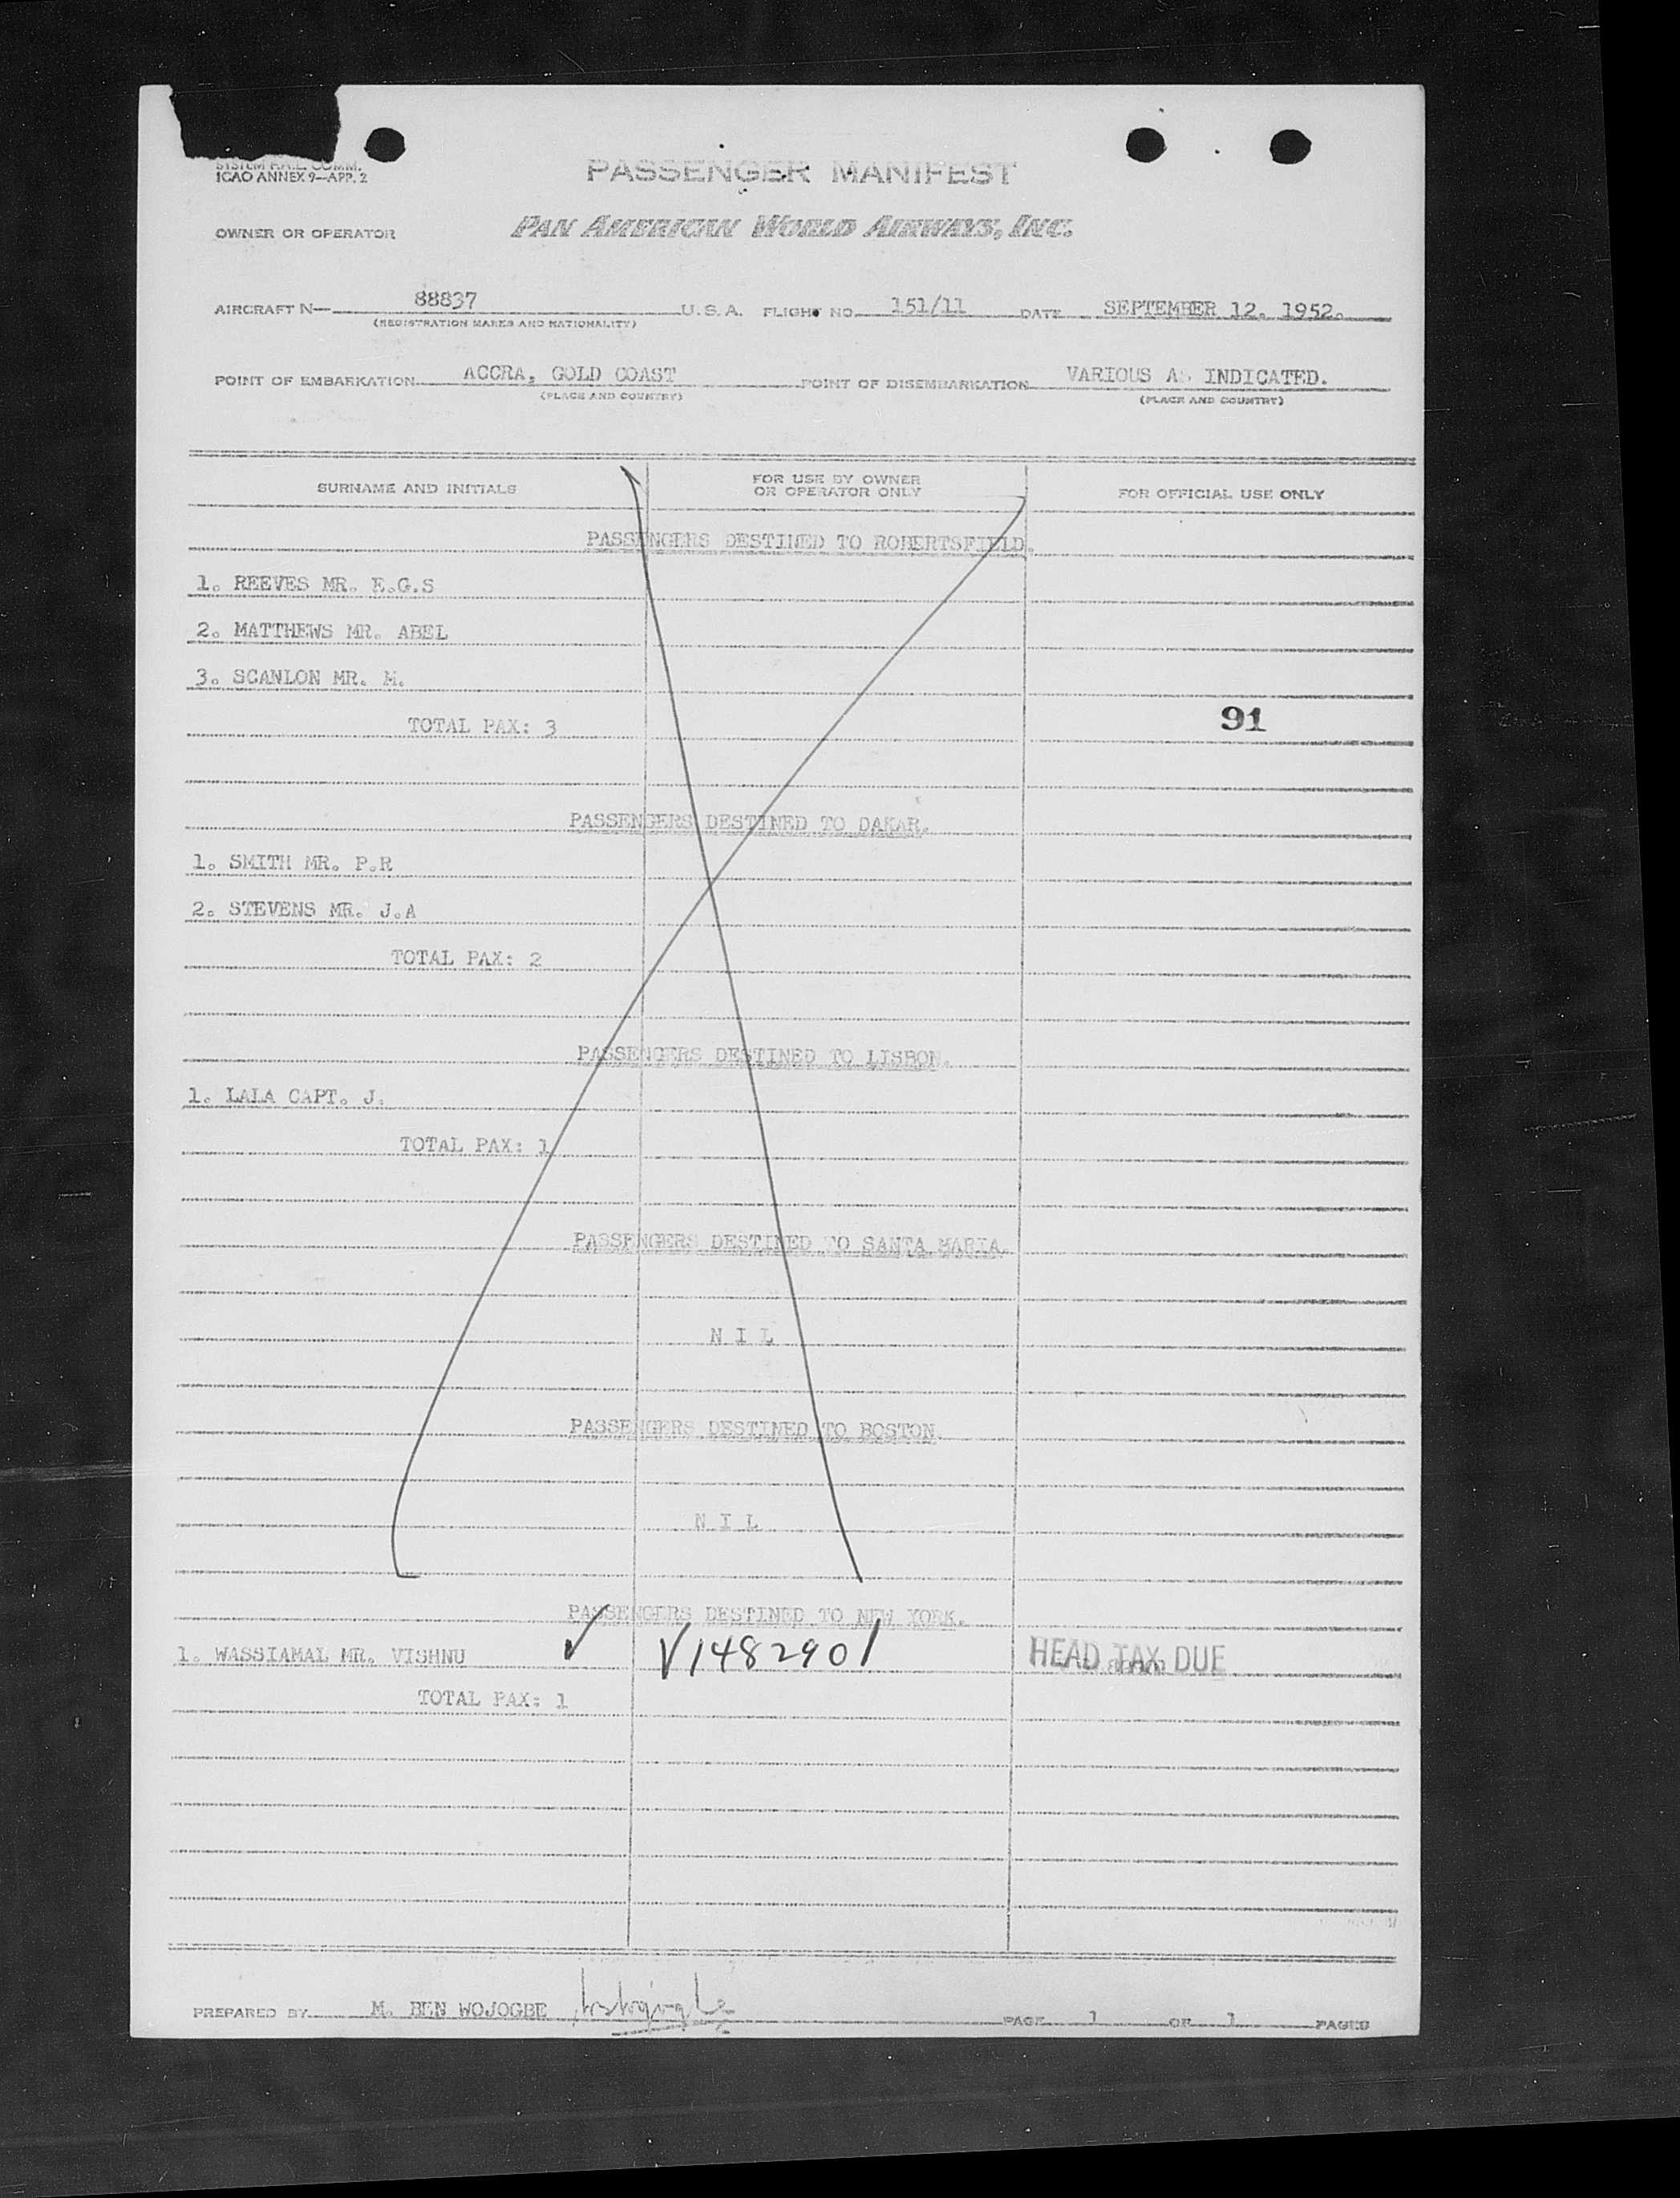 SYSTEM P.A.L. COMM.
ICAO ANNEX 9—APP. 2
PASSENGER MANIFEST
OWNER OR OPERATOR PAN AMERICAN WORLD AIRWAYS, INC.
AIRCRAFT N— 88837 U. S. A. FLIGHT NO. 151/11 DATE SEPTEMBER 12. 1952.
(REGISTRATION MARKS AND NATIONALITY)
POINT OF EMBARKATION ACCRA, GOLD COAST POINT OF DISEMBARKATION VARIOUS AS INDICATED.
(PLACE AND COUNTRY) (PLACE AND COUNTRY)
SURNAME AND INITIALS FOR USE BY OWNER OR OPERATOR ONLY FOR OFFICIAL USE ONLY
PASSENGERS DESTINED TO ROBERTSFIELD.
1. REEVES MR. E.G.S
2. MATTHEWS MR. ABEL
3. SCANLON MR. M.
TOTAL PAX: 3 91
PASSENGERS DESTINED TO DAKAR.
1. SMITH MR. P.R
2. STEVENS MR. J.A
TOTAL PAX: 2
PASSENGERS DESTINED TO LISBON.
1. LALA CAPT. J.
TOTAL PAX: 1
PASSENGERS DESTINED TO SANTA MARIA.
N I L
PASSENGERS DESTINED TO BOSTON.
N I L
PASSENGERS DESTINED TO NEW YORK.
1. WASSIAMAL MR. VISHNU ✓ V1482901 HEAD TAX DUE
TOTAL PAX: 1
PREPARED BY M. BEN WOJOGBE PAGE 1 OF 1 PAGES